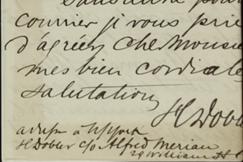 courrier je vous prie
d'agréer, cher Monsieur
mes bien cordiale
salutation
H Dobb
à New York
H Dober c/o Alfred Merian
William St